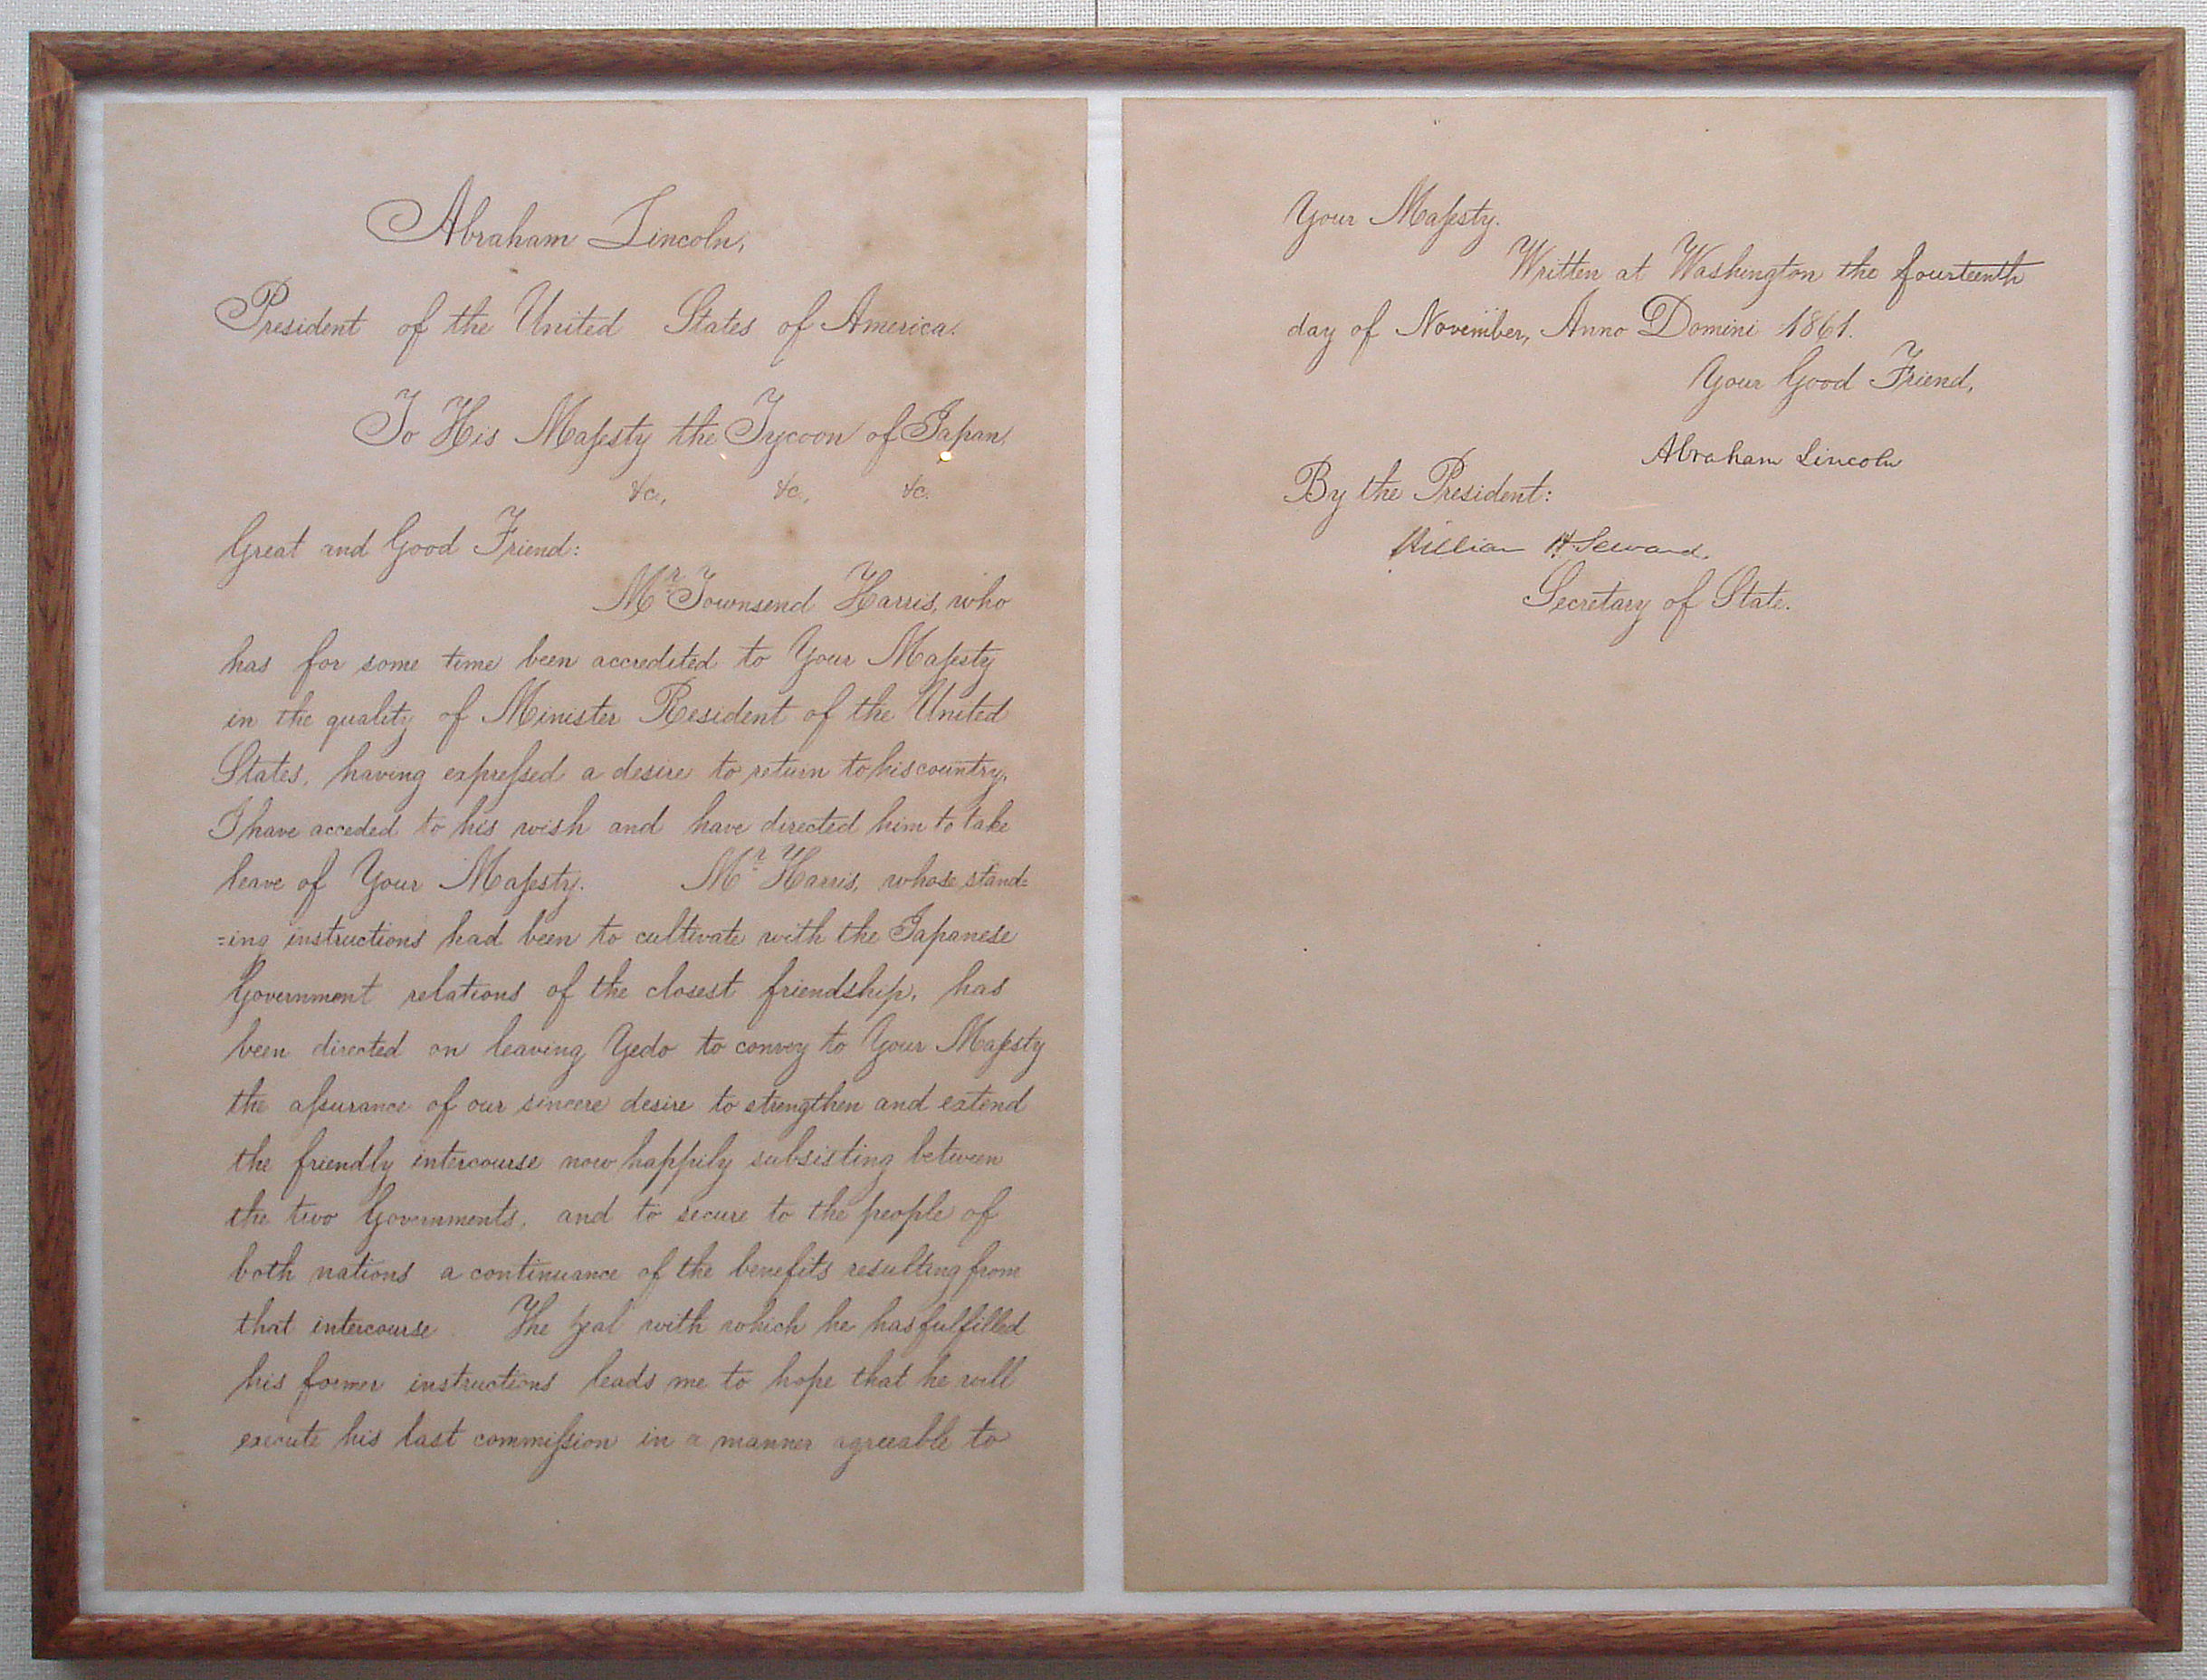 Abraham Lincoln,
President of the United States of America.
To His Majesty the Tycoon of Japan,
&c., &c., &c.
Great and Good Friend:
Mr. Townsend Harris, who
has for some time been accredited to Your Majesty
in the quality of Minister Resident of the United
States, having expreſsed a desire to return to his country,
I have acceded to his wish and have directed him to take
leave of Your Majesty. Mr. Harris, whose stand=
=ing instructions had been to cultivate with the Japanese
Government relations of the closest friendship, has
been directed on leaving Yedo to convey to Your Majesty
the aſsurance of our sincere desire to strengthen and extend
the friendly intercourse now happily subsisting between
the two Governments, and to secure to the people of
both nations a continuance of the benefits resulting from
that intercourse. The zeal with which he has fulfilled
his former instructions leads me to hope that he will
execute his last commiſsion in a manner agreeable to
Your Majesty.
Written at Washington the fourteenth
day of November, Anno Domini 1861.
Your Good Friend,
Abraham Lincoln
By the President:
William H. Seward.
Secretary of State.